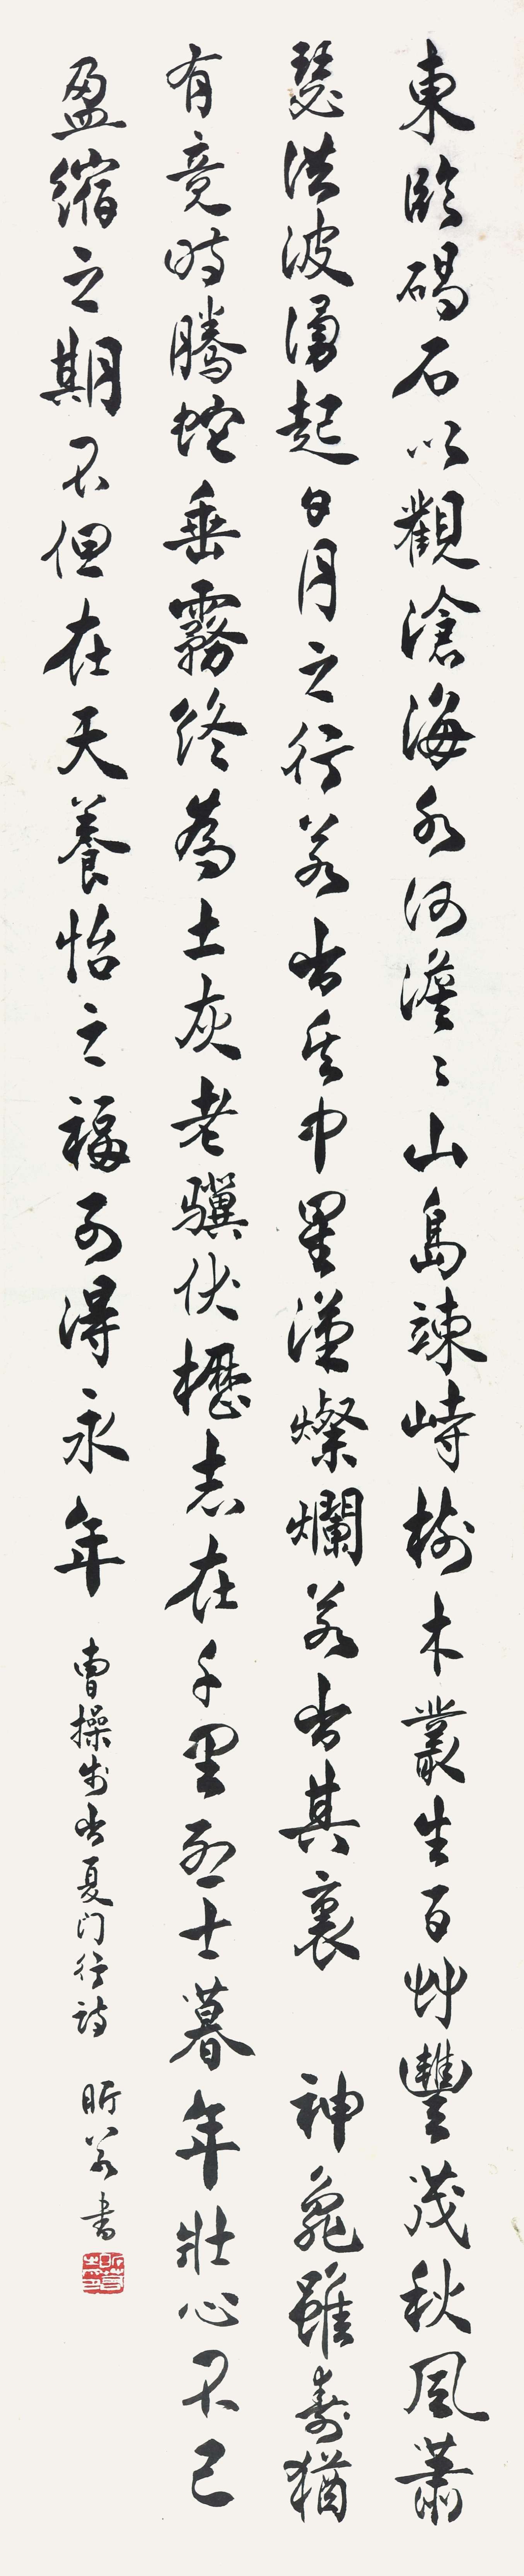 東臨碣石以觀滄海水何澹〻山島竦峙樹木叢生百艸豐茂秋風蕭
瑟洪波湧起日月之行若出其中星漢燦爛若出其裏 神龜雖壽猶
有竟時騰蛇垂霧終為土灰老驥伏櫪志在千里烈士暮年壯心不已
盈縮之期不但在天養怡之福可得永年 曹操步出夏门行詩 昕若書